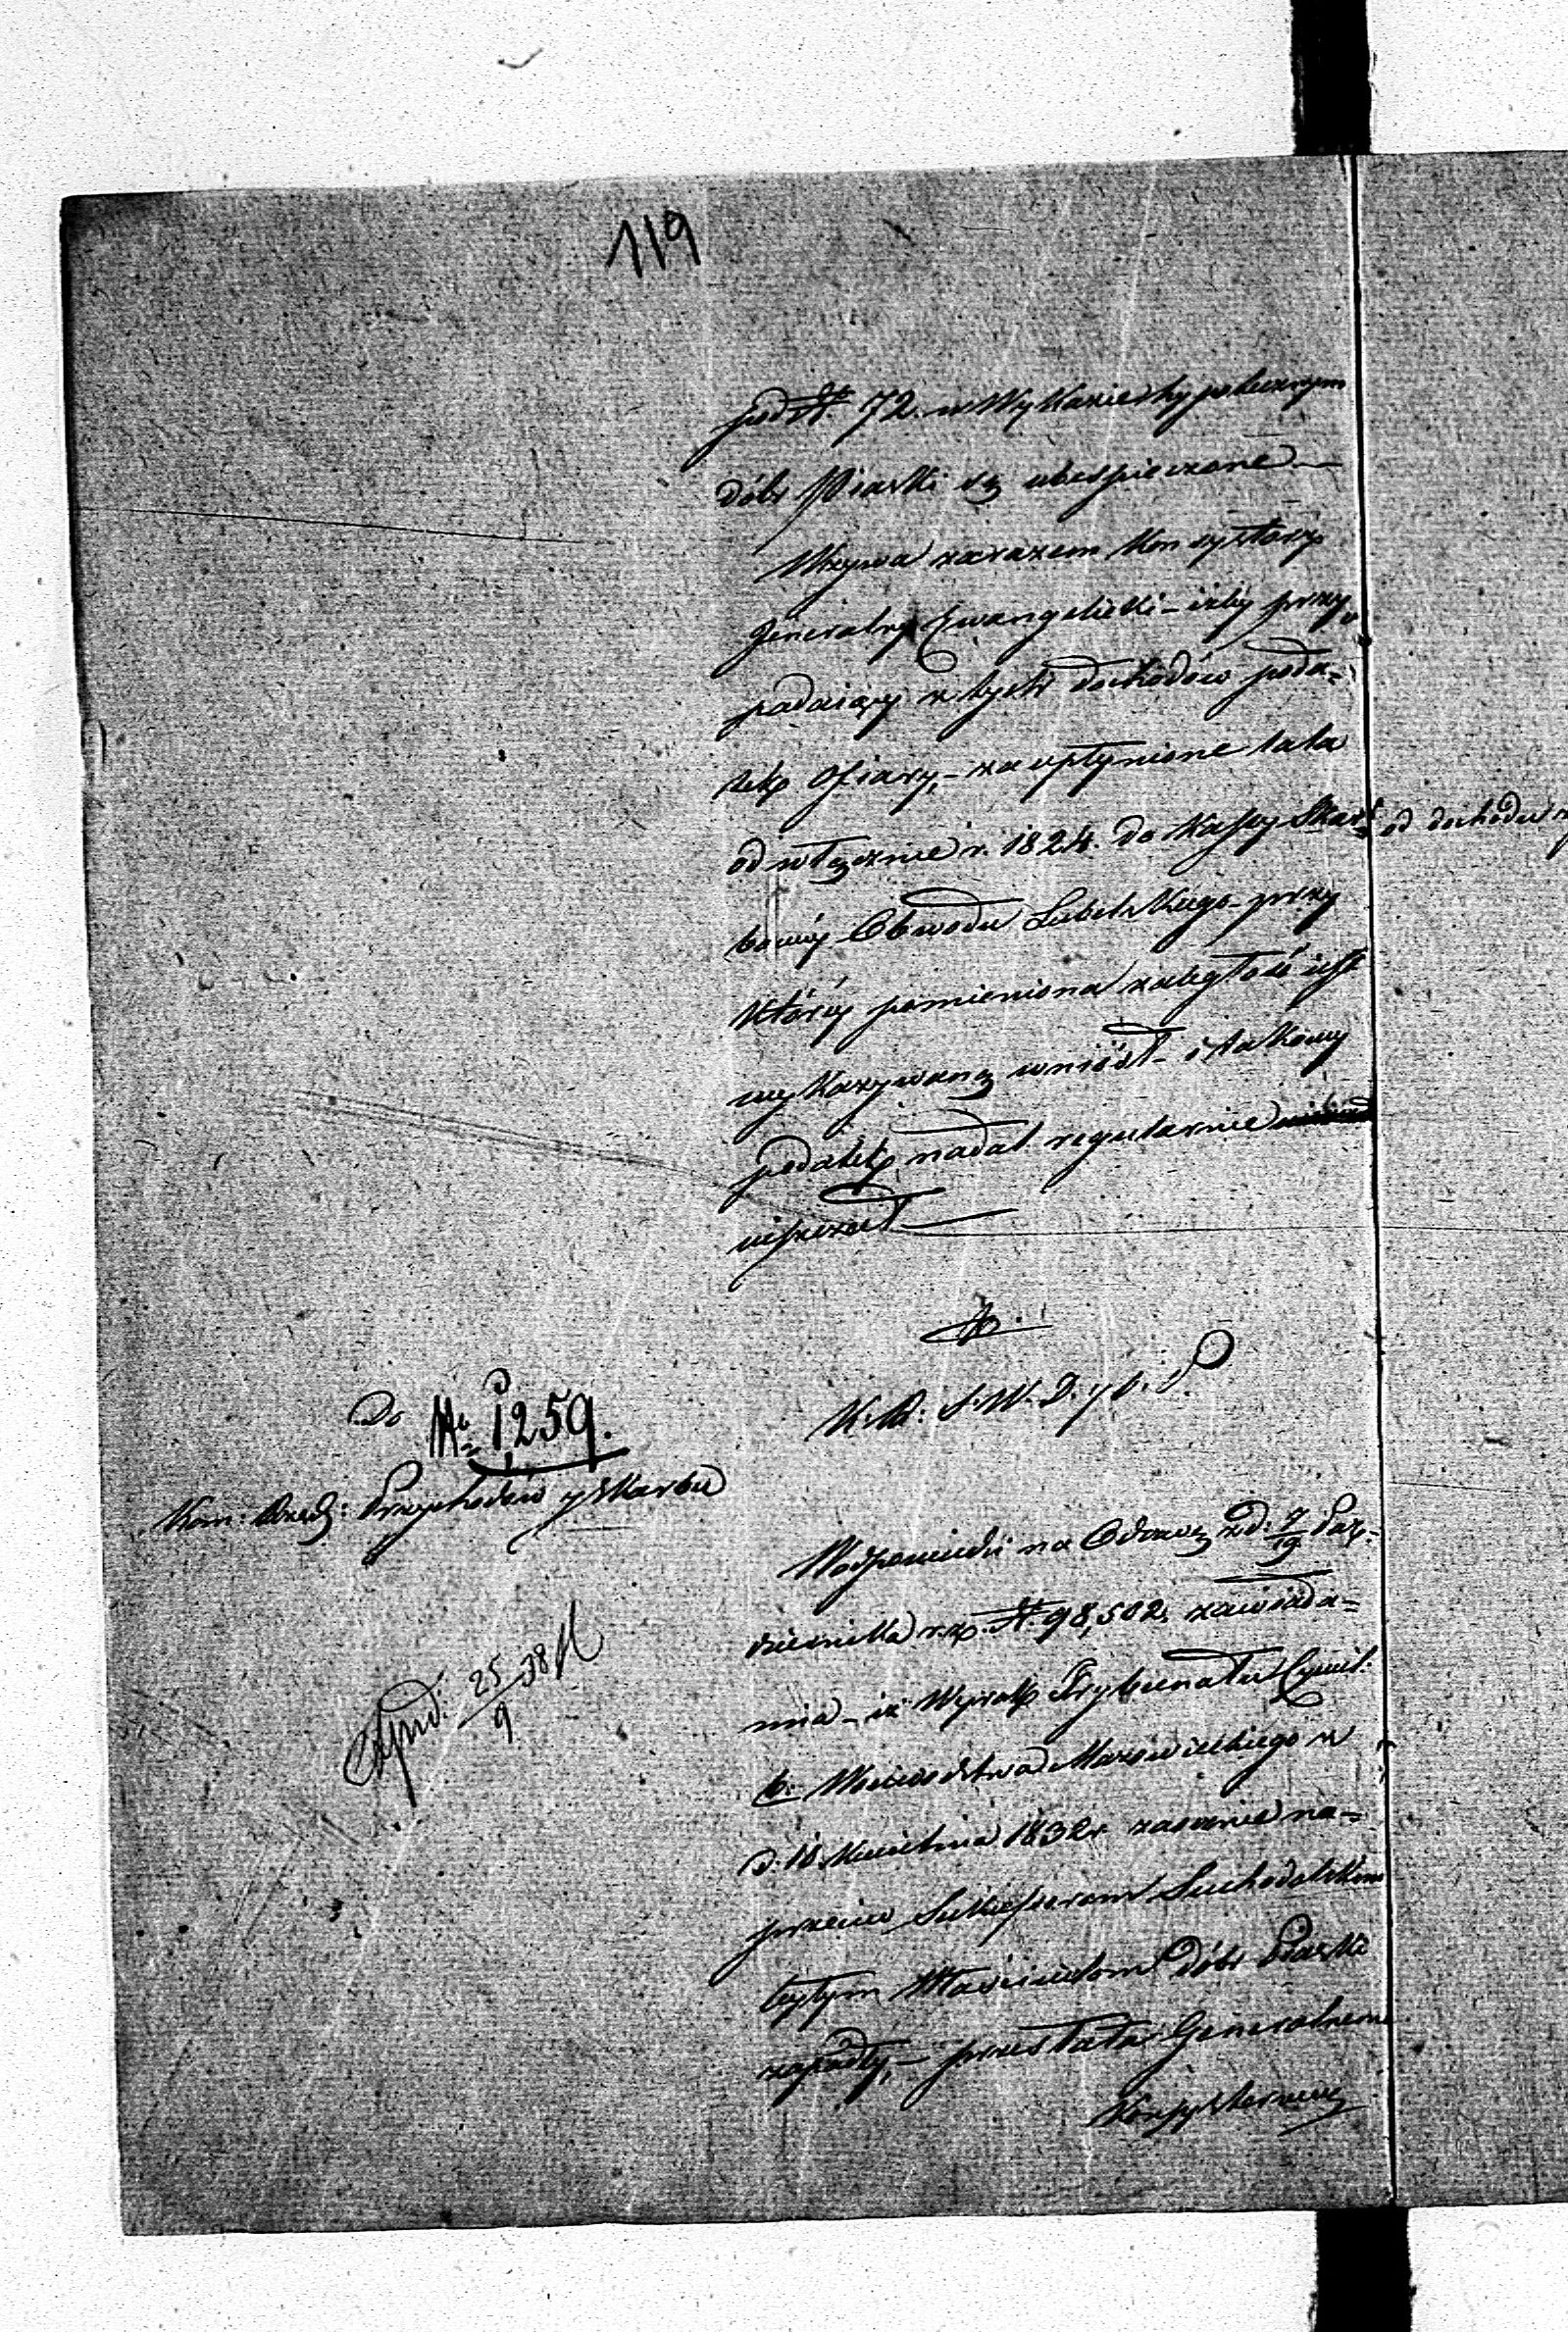 119
pod N. 72. w Wykazie hypotecznym
dóbr Piaski są ubespieczone
Wzywa zarazem Konsystorz
Generalny Ewangelicki - iżby przy-
padaiący z tych dochodów poda-
tek ofiary, - za upłynione lata
od włącznie r. 1824. do Kassy Skar-
bowey Obwodu Lubelskiego - przy
którey pomieniona zaległość iest
wykazywaną wniósł - i takowy
podatek nadal regularnie
uiszczał
od dochodu
K. R. S. W. D. y O. P.
Do
No 1259.
Kom: Rząd: Przychodów y Skarbu
W odpowiedzi na Odezwę z d: 7/19 Paź-
dziernika r. z. N. 98,502. zawiada-
mia - iż Wyrok Trybunału Cywil:
b. Woiewodztwa Mazowieckiego w
d. 16. Kwietnia 1832 r. zaocznie na-
przeciw Sukcessorom Suchodolskim
byłym Właścicielom Dóbr Piaski
zapadły, - przesłała Generalnemu
Konsystorzowi
Expd. 25/9 38